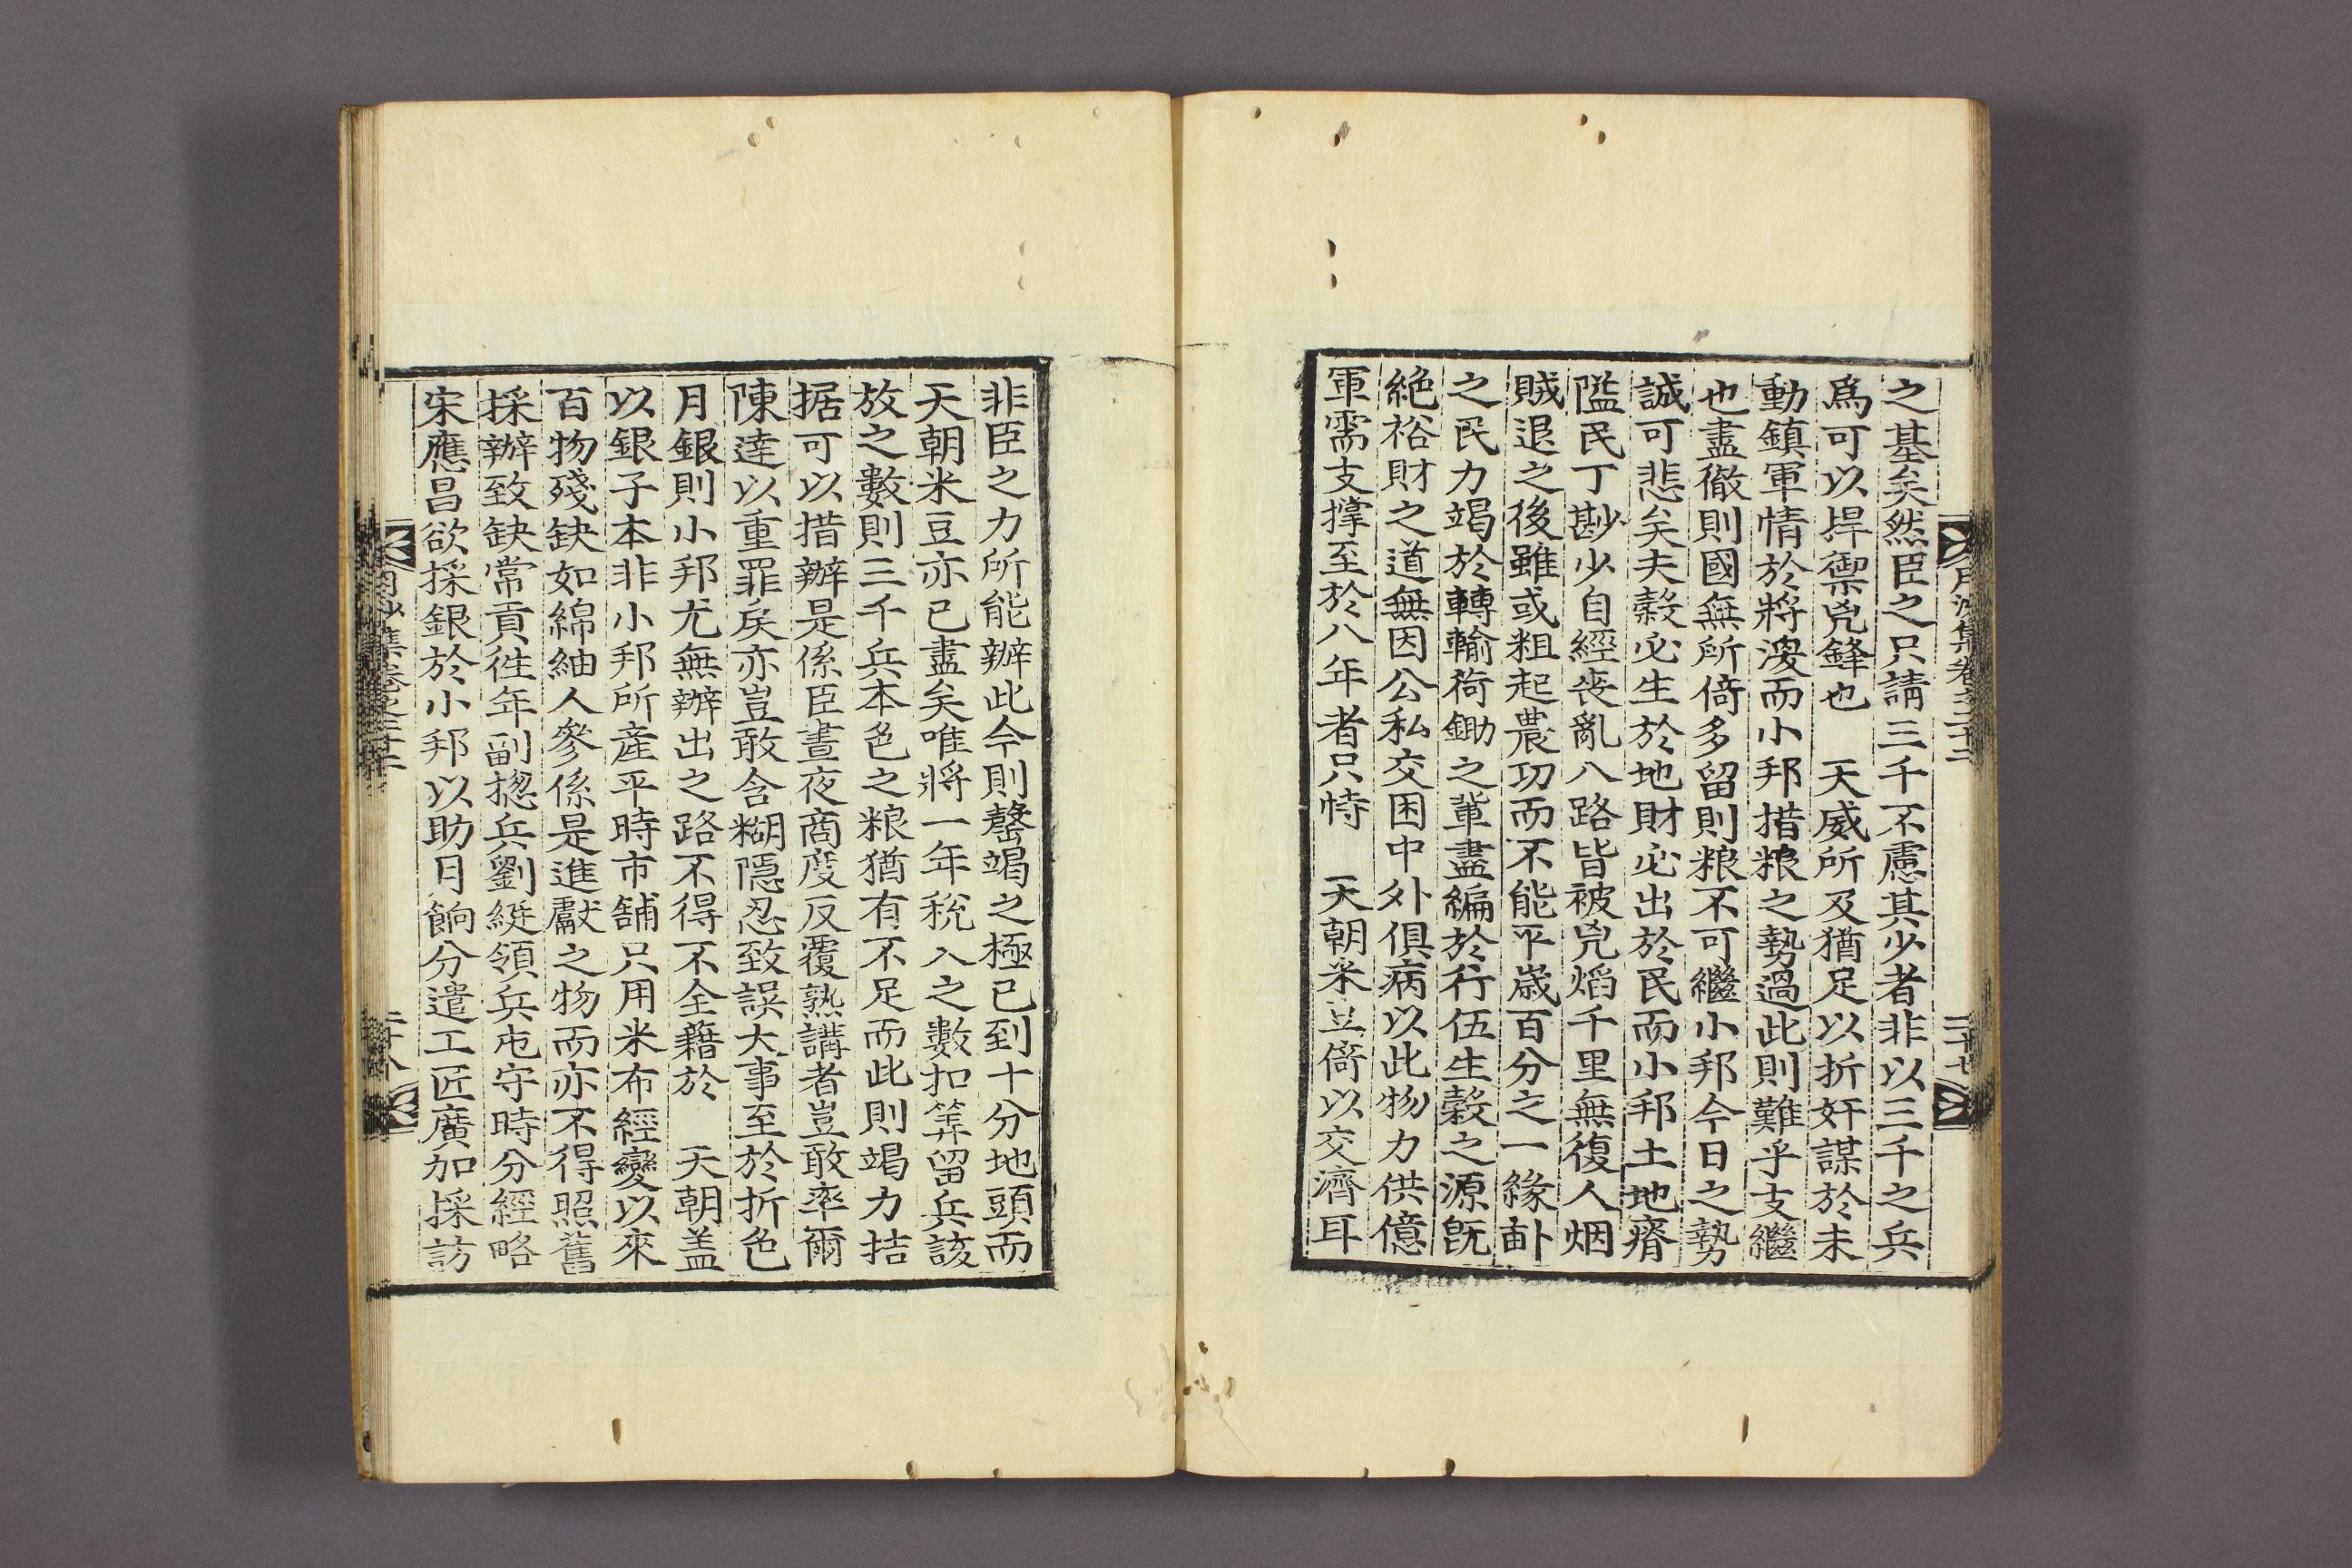 之基矣然臣之只請三千不慮其少者非以三千之兵
爲可以捍禦兇鋒也　天威所及猶足以折奸謀於未
動鎮軍情於將渙而小邦措粮之勢過此則難乎支繼
也盡徹則國無所倚多留則粮不可繼小邦今日之勢
誠可悲矣夫穀必生於地財必出於民而小邦土地瘠
隘民丁尠少自經喪亂八路皆被兇熖千里無復人烟
賊退之後雖或粗起農功而不能平歲百分之一緣南
之民力竭於轉輸荷鋤之輩盡編於行伍生穀之源旣
絶裕財之道無因公私交困中外俱病以此物力供億
軍需支撑至於八年者只恃　天朝米豆倚以交濟耳
月沙集卷之二十二
二十七
非臣之力所能辦此今則罄竭之極已到十分地頭而
天朝米豆亦已盡矣唯將一年稅入之數扣筭留兵該
放之數則三千兵本色之粮猶有不足而此則竭力拮
据可以措辦是係臣晝夜商度反覆熟講者豈敢率爾
陳達以重罪戾亦豈敢含糊隱忍致誤大事至於折色
月銀則小邦尤無辦出之路不得不全藉於　天朝盖
以銀子本非小邦所産平時市舖只用米布經變以來
百物殘缺如綿紬人參係是進獻之物而亦不得照舊
採辦致缺常貢徃年副摠兵劉綎領兵屯守時分經略
宋應昌欲採銀於小邦以助月餉分遣工匠廣加採訪
月沙集卷之二十二
二十八